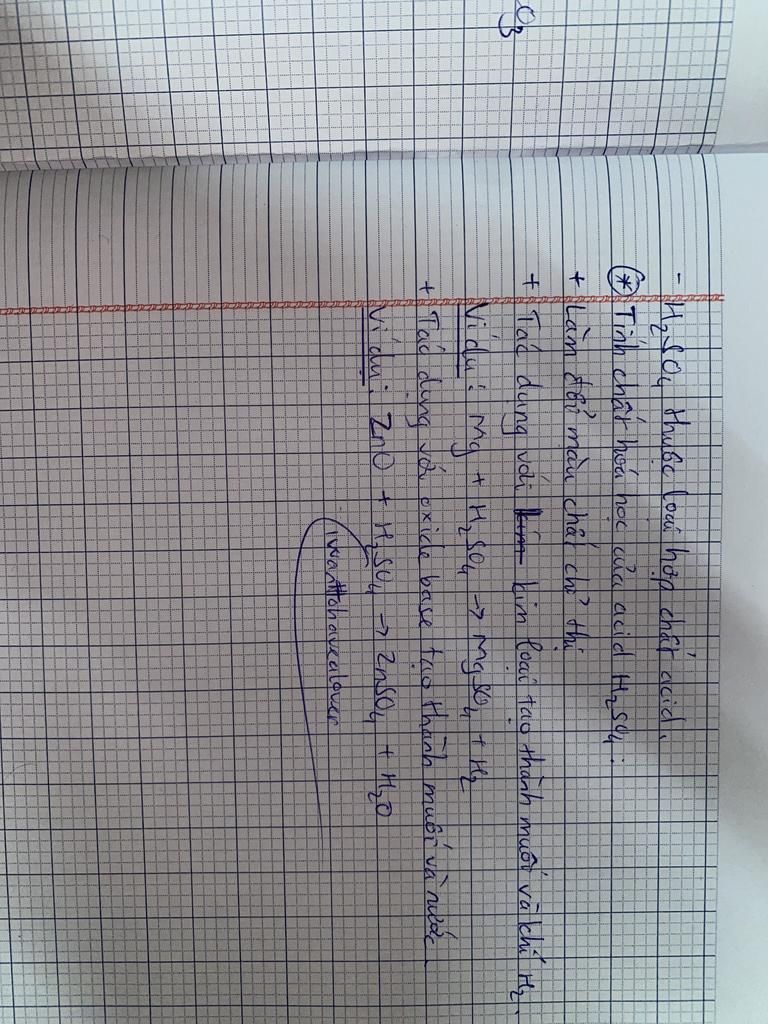 O3
- H2SO4 thuộc loại hợp chất acid.
* Tính chất hoá học của acid H2SO4:
+ Làm đổi màu chất chỉ thị
+ Tác dụng với kim kim loại tạo thành muối và khí H2.
Ví dụ: Mg + H2SO4 → MgSO4 + H2
+ Tác dụng với oxide base tạo thành muối và nước.
Ví dụ: ZnO + H2SO4 → ZnSO4 + H2O
iwanttohavealover